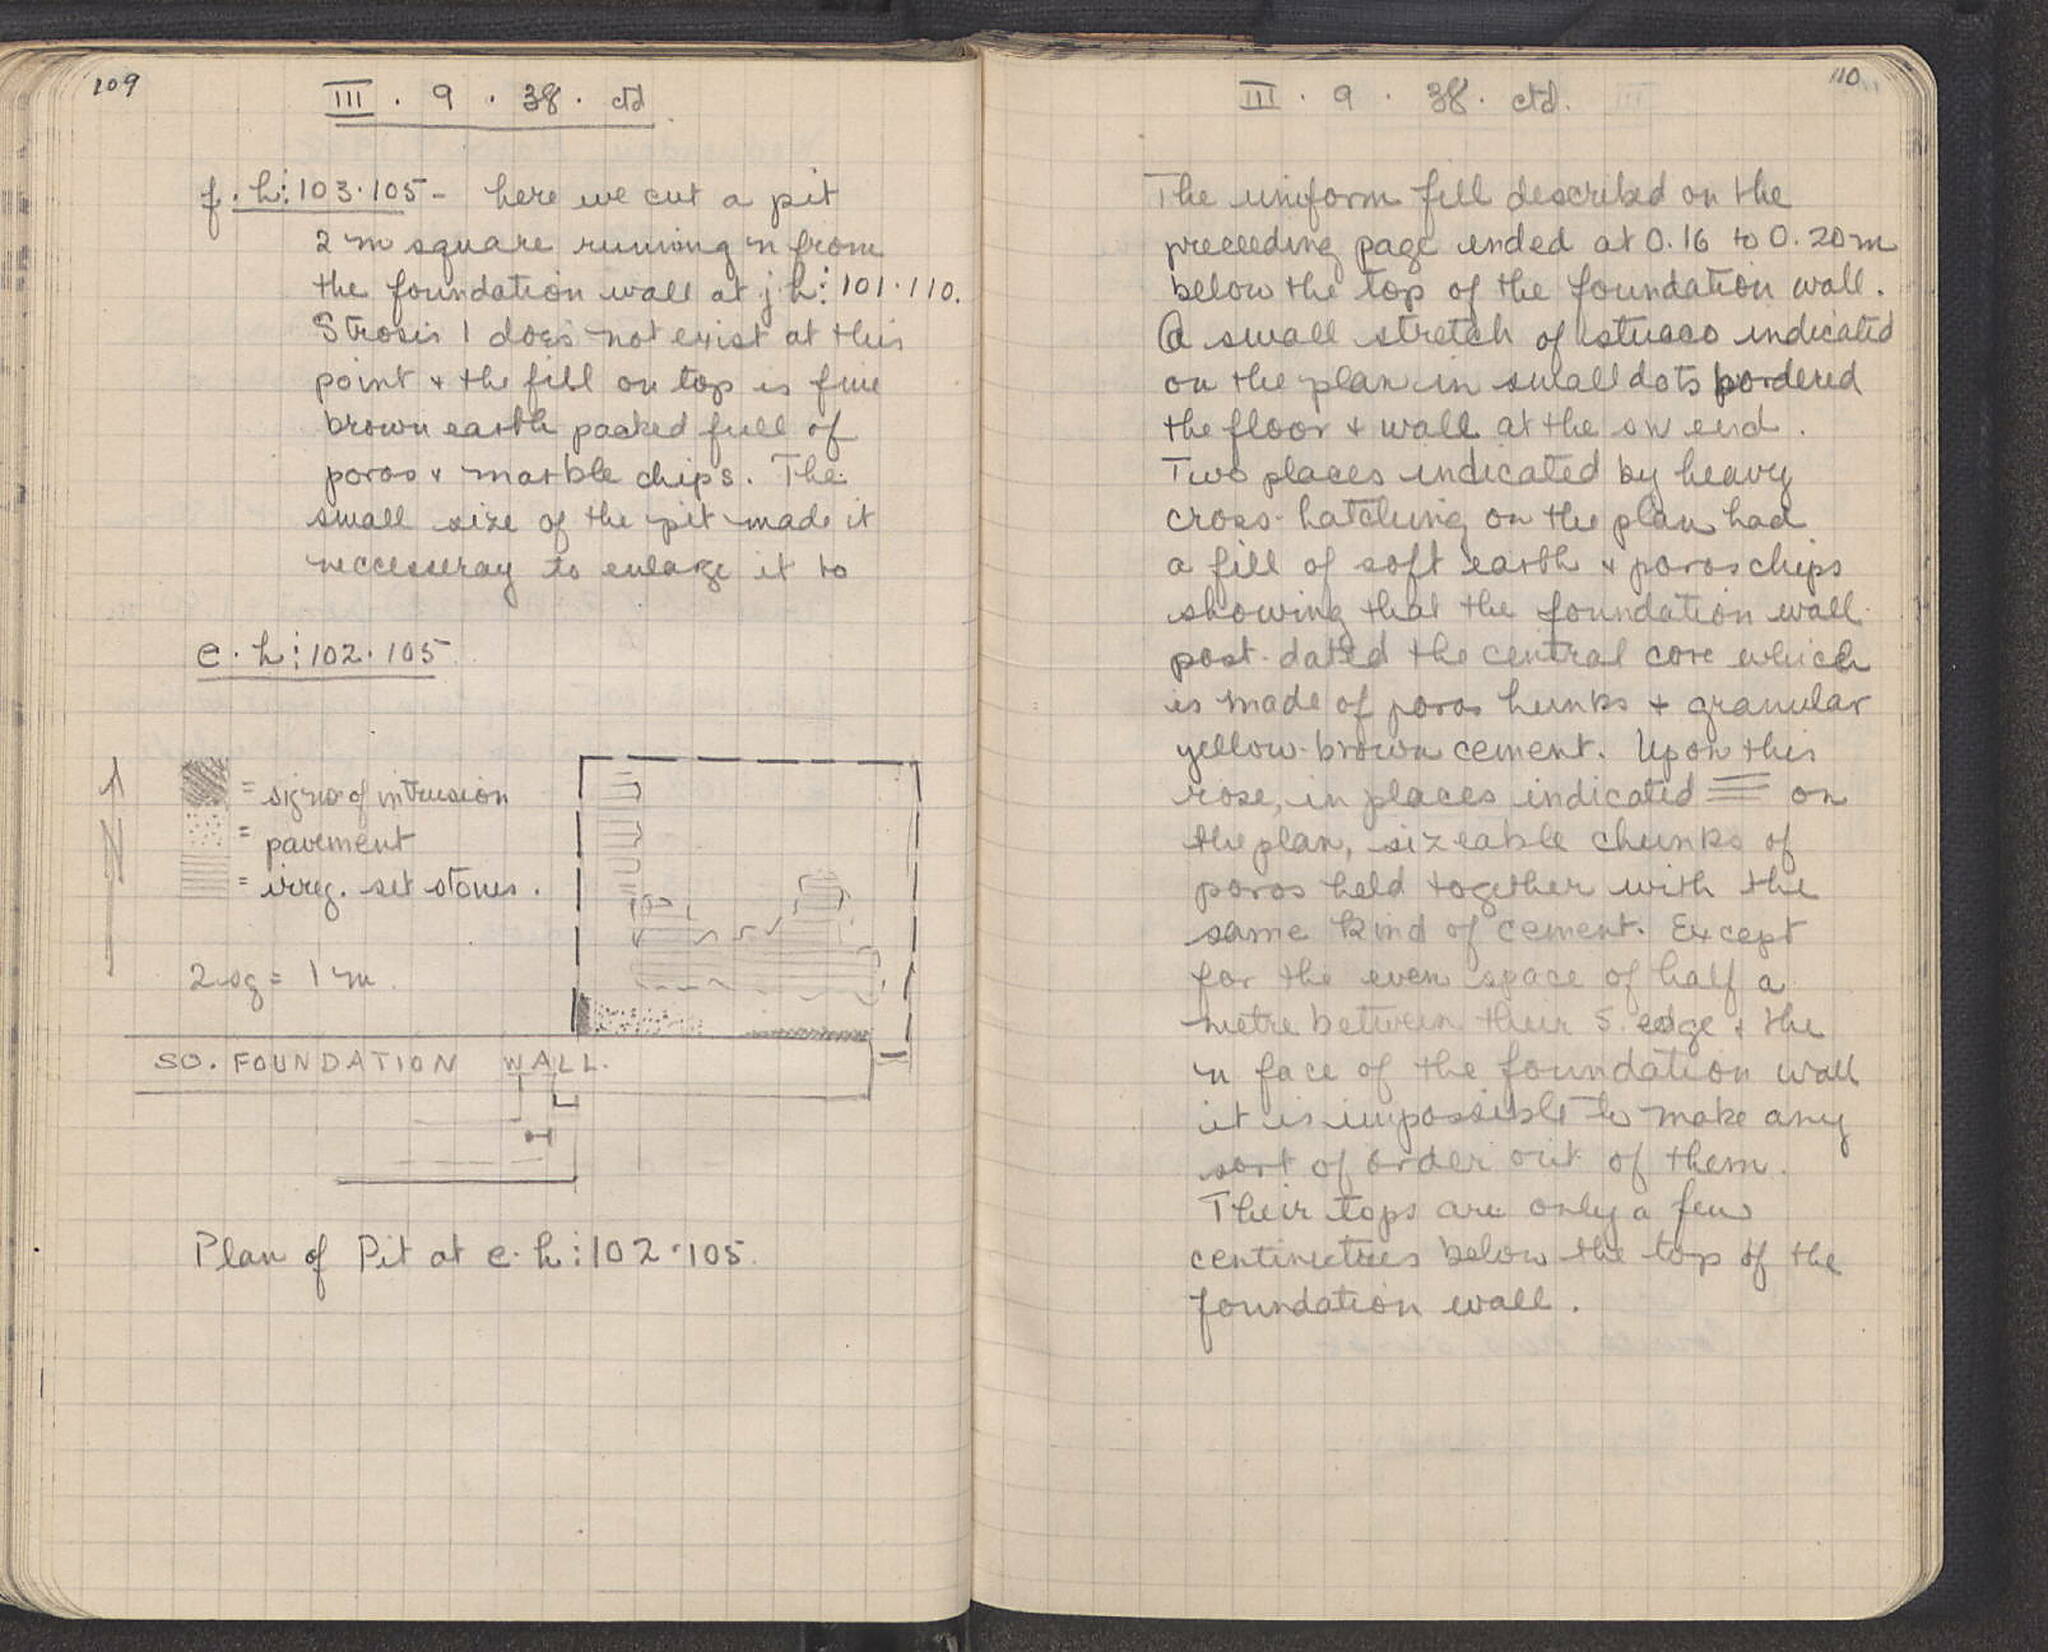 109
III . 9 . 38 . ctd
f . h : 103 . 105 - here we cut a pit
2 m square running n from
the foundation wall at j. h : 101 . 110.
Strosis 1 does not exist at this
point + the fill on top is fine
brown earth packed full of
poros + marble chips. The
small size of the pit made it
neccesseray to enlarge it to
e . h : 102 . 105
N
= signs of intrusion
= pavement
= irreg. set stones .
2 sq = 1 m .
SO. FOUNDATION WALL.
Plan of Pit at e . h : 102 . 105 .
110
III . 9 . 38 . ctd.
The uniform fill described on the
preceeding page ended at 0.16 to 0.20 m
below the top of the foundation wall.
A small stretch of stucco indicated
on the plan in small dots bordered
the floor + wall at the sw end .
Two places indicated by heavy
cross-hatching on the plan had
a fill of soft earth + poros chips
showing that the foundation wall
post-dated the central core which
is made of poros hunks + granular
yellow-brown cement. Upon this
rose, in places indicated ≡ on
the plan, sizeable chunks of
poros held together with the
same kind of cement. Except
for the even space of half a
metre between their S. edge + the
n face of the foundation wall
it is impossible to make any
sort of order out of them.
Their tops are only a few
centimetres below the top of the
foundation wall .